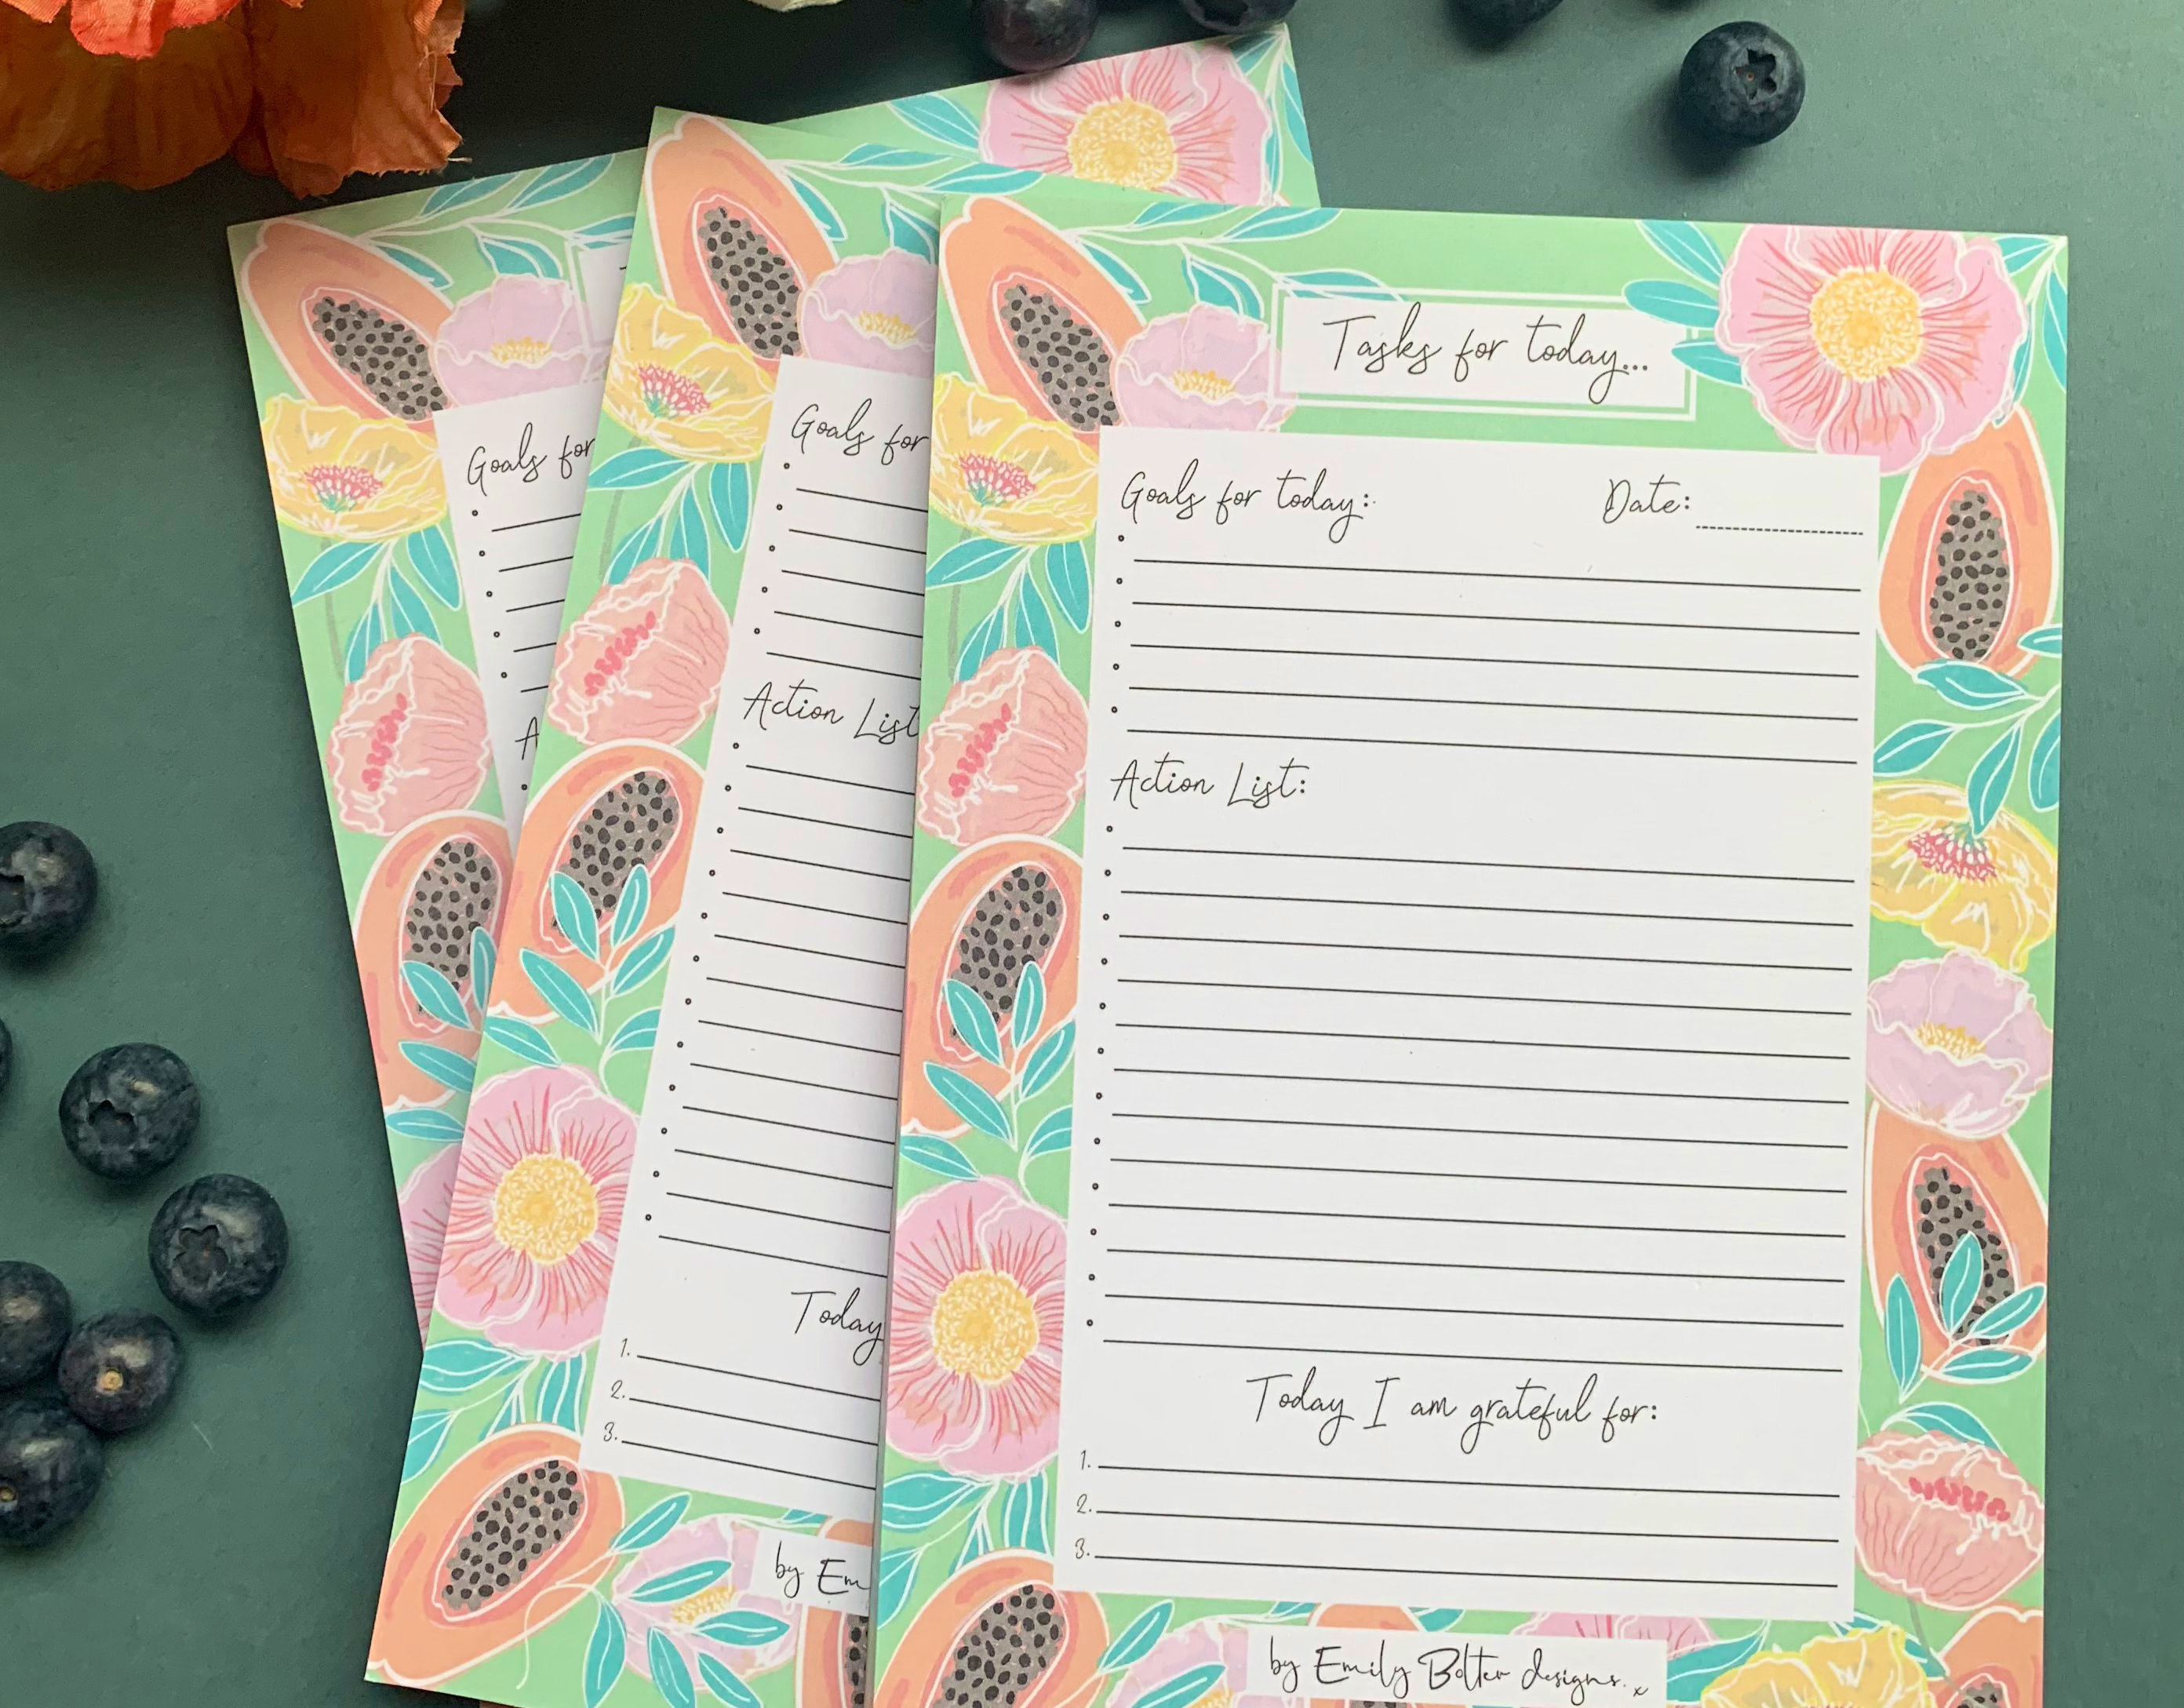 Goals for
A
Goals for
Action List
Today
1.
2.
3.
by Em
Tasks for today...
Goals for today:
Date:
Action List:
Today I am grateful for:
1.
2.
3.
by Emily Bolter designs. x